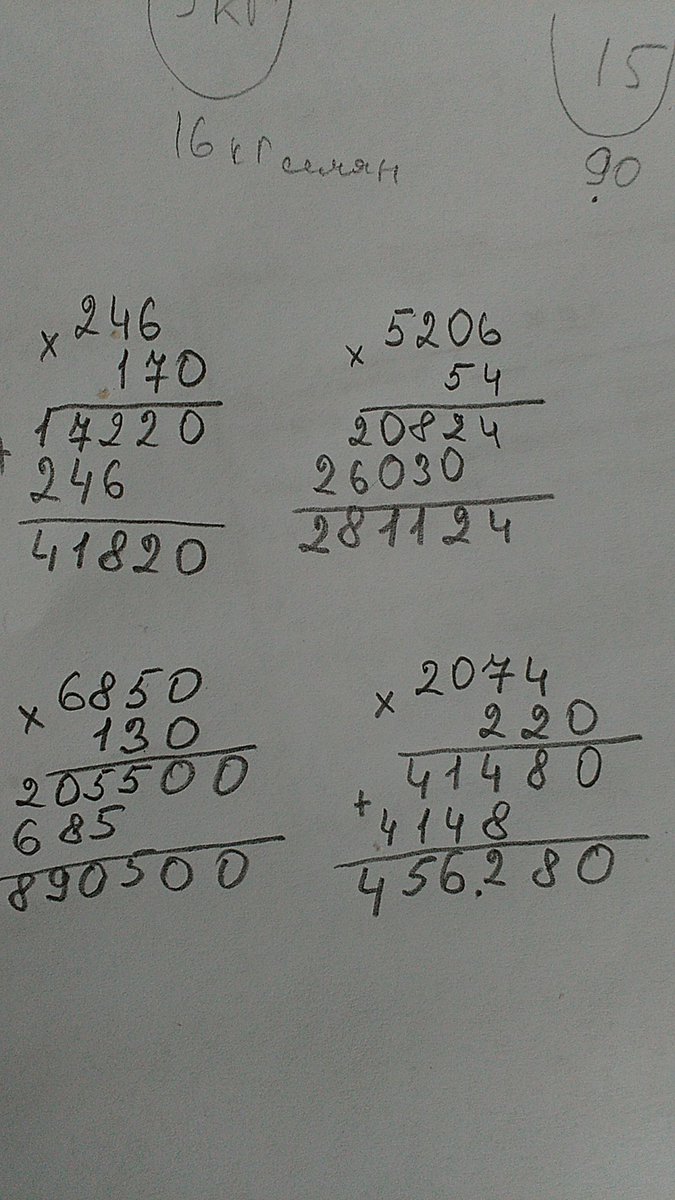 15
16 кг семян
90
× 246
170
17220
+ 246
41820
× 5206
54
20824
26030
281124
× 6850
130
205500
685
890500
× 2074
220
41480
+ 4148
456.280